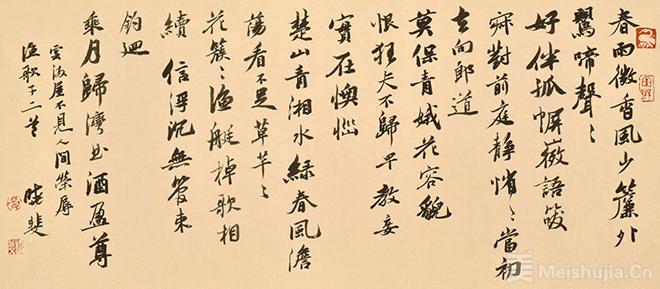 春雨微香風少簾外
鶯啼聲〻
好伴孤幈微語笑
寂對前庭靜悄〻當初
去向郎道
莫保青娥花容貌
恨狂夫不歸早教妾
實在懊惱
楚山青湘水綠春風澹
蕩看不足草芊〻
花簇〻漁艇棹歌相
續信浮沉無管束
釣廻
乘月歸灣曲酒盈尊
雲滿屋不見人間榮辱
漁歌子二首
Meishujia.Cn